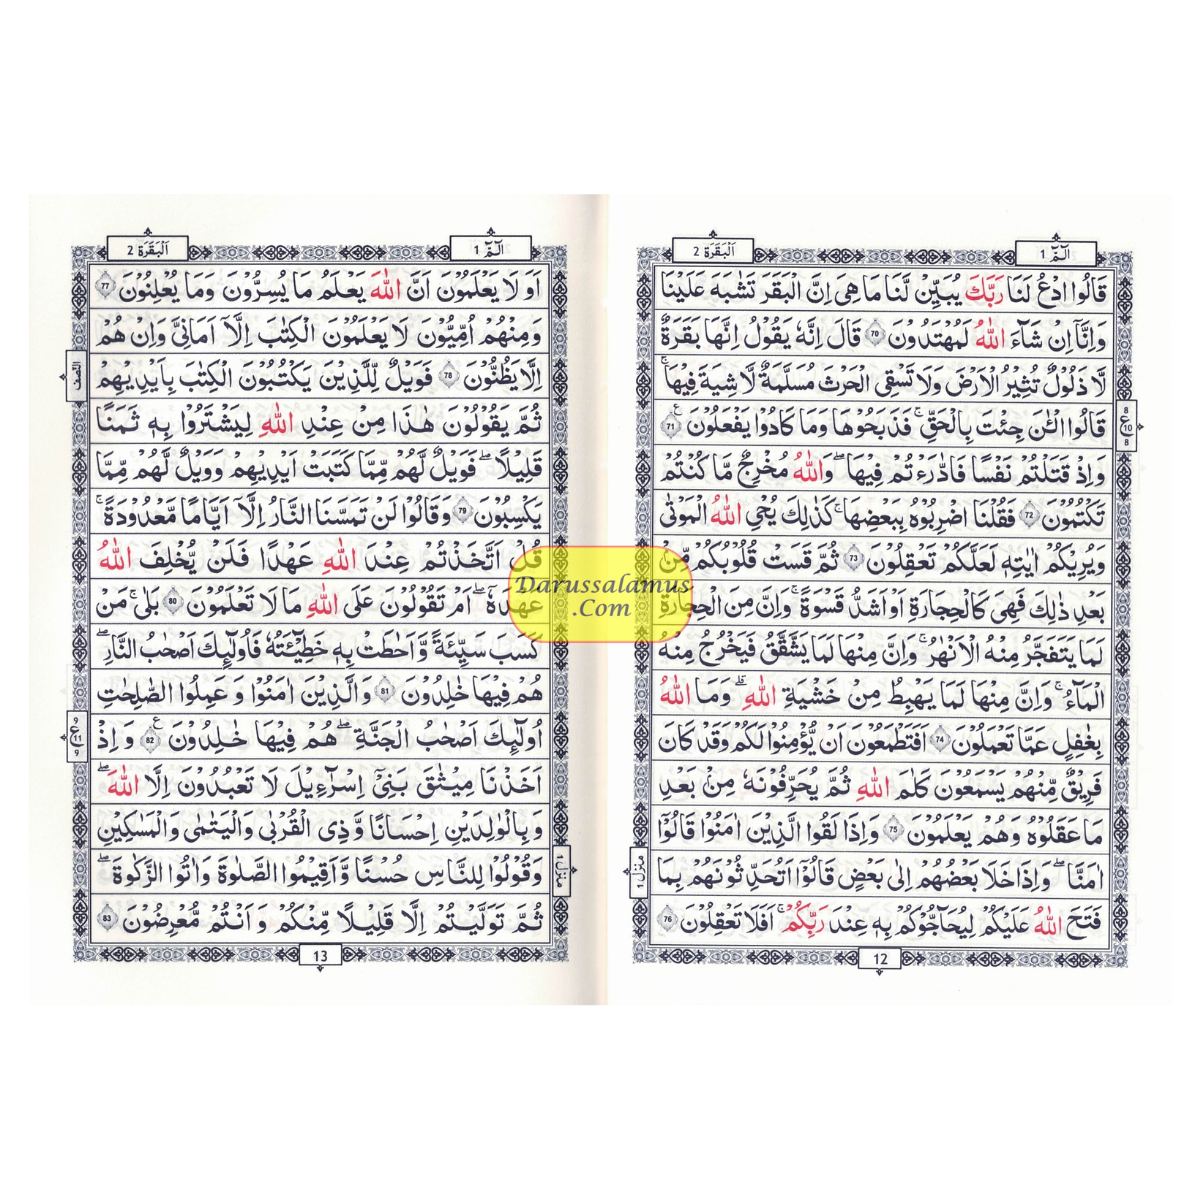 الٓمّٓ 1
اَلْبَقَرَة 2
قَالُوا ادْعُ لَنَا رَبَّكَ يُبَيِّنْ لَّنَا مَا هِىَ اِنَّ الْبَقَرَ تَشٰبَهَ عَلَيْنَا
وَاِنَّآ اِنْ شَآءَ اللّٰهُ لَمُهْتَدُوْنَ 70 قَالَ اِنَّهٗ يَقُوْلُ اِنَّهَا بَقَرَةٌ
لَّا ذَلُوْلٌ تُثِيْرُ الْاَرْضَ وَلَا تَسْقِى الْحَرْثَ مُسَلَّمَةٌ لَّا شِيَةَ فِيْهَا ۚ
قَالُوا الْـٰٔنَ جِئْتَ بِالْحَقِّ ۚ فَذَبَحُوْهَا وَمَا كَادُوْا يَفْعَلُوْنَ 71 ع
8
ع
10
8
وَاِذْ قَتَلْتُمْ نَفْسًا فَادّٰرَءْتُمْ فِيْهَا ۗ وَاللّٰهُ مُخْرِجٌ مَّا كُنْتُمْ
تَكْتُمُوْنَ 72 فَقُلْنَا اضْرِبُوْهُ بِبَعْضِهَا ۚ كَذٰلِكَ يُحْىِ اللّٰهُ الْمَوْتٰى
وَيُرِيْكُمْ اٰيٰتِهٖ لَعَلَّكُمْ تَعْقِلُوْنَ 73 ثُمَّ قَسَتْ قُلُوْبُكُمْ مِّنْ
بَعْدِ ذٰلِكَ فَهِىَ كَالْحِجَارَةِ اَوْ اَشَدُّ قَسْوَةً ۚ وَاِنَّ مِنَ الْحِجَارَةِ
لَمَا يَتَفَجَّرُ مِنْهُ الْاَنْهٰرُ ۚ وَاِنَّ مِنْهَا لَمَا يَشَّقَّقُ فَيَخْرُجُ مِنْهُ
الْمَآءُ ۚ وَاِنَّ مِنْهَا لَمَا يَهْبِطُ مِنْ خَشْيَةِ اللّٰهِ ۗ وَمَا اللّٰهُ
بِغٰفِلٍ عَمَّا تَعْمَلُوْنَ 74 اَفَتَطْمَعُوْنَ اَنْ يُّؤْمِنُوْا لَكُمْ وَقَدْ كَانَ
فَرِيْقٌ مِّنْهُمْ يَسْمَعُوْنَ كَلٰمَ اللّٰهِ ثُمَّ يُحَرِّفُوْنَهٗ مِنْۢ بَعْدِ
مَا عَقَلُوْهُ وَهُمْ يَعْلَمُوْنَ 75 وَاِذَا لَقُوا الَّذِيْنَ اٰمَنُوْا قَالُوْٓا
اٰمَنَّا ۖ وَاِذَا خَلَا بَعْضُهُمْ اِلٰى بَعْضٍ قَالُوْٓا اَتُحَدِّثُوْنَهُمْ بِمَا
فَتَحَ اللّٰهُ عَلَيْكُمْ لِيُحَآجُّوْكُمْ بِهٖ عِنْدَ رَبِّكُمْ ۚ اَفَلَا تَعْقِلُوْنَ 76
منزل 1
12
الٓمّٓ 1
اَلْبَقَرَة 2
اَوَ لَا يَعْلَمُوْنَ اَنَّ اللّٰهَ يَعْلَمُ مَا يُسِرُّوْنَ وَمَا يُعْلِنُوْنَ 77
وَمِنْهُمْ اُمِّيُّوْنَ لَا يَعْلَمُوْنَ الْكِتٰبَ اِلَّآ اَمَانِىَّ وَاِنْ هُمْ
اِلَّا يَظُنُّوْنَ 78 فَوَيْلٌ لِّلَّذِيْنَ يَكْتُبُوْنَ الْكِتٰبَ بِاَيْدِيْهِمْ
النصف
ثُمَّ يَقُوْلُوْنَ هٰذَا مِنْ عِنْدِ اللّٰهِ لِيَشْتَرُوْا بِهٖ ثَمَنًا
قَلِيْلًا ۗ فَوَيْلٌ لَّهُمْ مِّمَّا كَتَبَتْ اَيْدِيْهِمْ وَوَيْلٌ لَّهُمْ مِّمَّا
يَكْسِبُوْنَ 79 وَقَالُوْا لَنْ تَمَسَّنَا النَّارُ اِلَّآ اَيَّامًا مَّعْدُوْدَةً ۚ
قُلْ اَتَّخَذْتُمْ عِنْدَ اللّٰهِ عَهْدًا فَلَنْ يُّخْلِفَ اللّٰهُ
عَهْدَهٗٓ ۖ اَمْ تَقُوْلُوْنَ عَلَى اللّٰهِ مَا لَا تَعْلَمُوْنَ 80 بَلٰى ۚ مَنْ
كَسَبَ سَيِّئَةً وَّاَحَاطَتْ بِهٖ خَطِيْٓئَتُهٗ فَاُولٰٓئِكَ اَصْحٰبُ النَّارِ ۖ
هُمْ فِيْهَا خٰلِدُوْنَ 81 وَالَّذِيْنَ اٰمَنُوْا وَعَمِلُوا الصّٰلِحٰتِ
اُولٰٓئِكَ اَصْحٰبُ الْجَنَّةِ ۖ هُمْ فِيْهَا خٰلِدُوْنَ 82 ع وَاِذْ
ع
11
اَخَذْنَا مِيْثٰقَ بَنِىْٓ اِسْرَآءِيْلَ لَا تَعْبُدُوْنَ اِلَّا اللّٰهَ ۖ
وَبِالْوَالِدَيْنِ اِحْسَانًا وَّذِى الْقُرْبٰى وَالْيَتٰمٰى وَالْمَسٰكِيْنِ
وَقُوْلُوْا لِلنَّاسِ حُسْنًا وَّاَقِيْمُوا الصَّلٰوةَ وَاٰتُوا الزَّكٰوةَ ۖ
ثُمَّ تَوَلَّيْتُمْ اِلَّا قَلِيْلًا مِّنْكُمْ وَاَنْتُمْ مُّعْرِضُوْنَ 83
منزل 1
13
Darussalamus
.Com